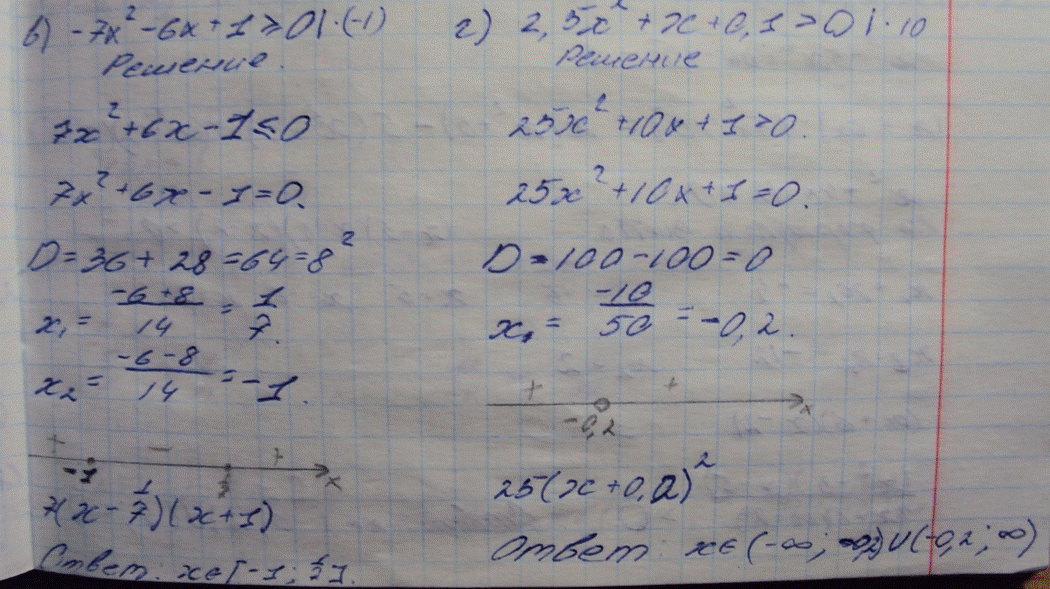 в) -7x² -6x +1 ≥ 0 | ·(-1)
Решение.
7x² +6x -1 ≤ 0
7x² +6x -1 = 0.
D = 36 + 28 = 64 = 8²
x₁ = (-6+8)/14 = 1/7.
x₂ = (-6-8)/14 = -1.
+ − +
-1 x
7(x - 1/7)(x+1)
Ответ: x∈[-1; 1/7].
г) 2,5x² + x + 0,1 > 0 | ·10
Решение
25x² +10x +1 > 0.
25x² +10x +1 = 0.
D = 100 - 100 = 0
x₁ = -10/50 = -0,2.
+ +
-0,2 x
25(x+0,2)²
Ответ: x∈(-∞; -0,2)∪(-0,2; ∞)